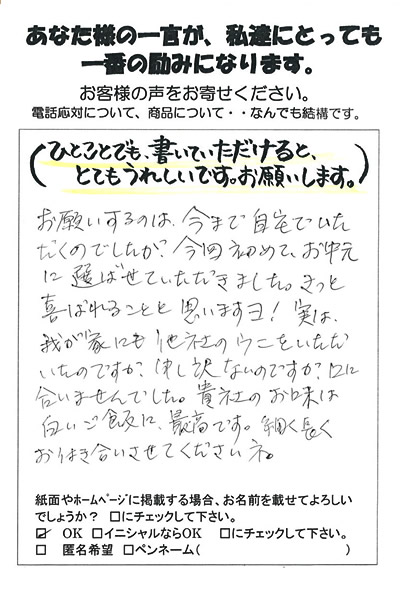 あなた様の一言が、私達にとっても
一番の励みになります。
お客様の声をお寄せください。
電話応対について、商品について・・なんでも結構です。
(ひとことでも、書いていただけると、
とてもうれしいです。お願いします。)
お願いするのは、今まで自宅でいた
だくのでしたが、今回初めて、お中元
に選ばせていただきました。きっと
喜ばれることと思いますヨ！実は、
我が家にも他社のウニをいただ
いたのですが、申し訳ないのですが、口に
合いませんでした。貴社のお味は
白いご飯に、最高です。細く長く
お付き合いさせてくださいネ。
紙面やホームページに掲載する場合、お名前を載せてよろしい
でしょうか？ □にチェックして下さい。
☑ OK □イニシャルならOK □にチェックして下さい。
□ 匿名希望 □ペンネーム( )